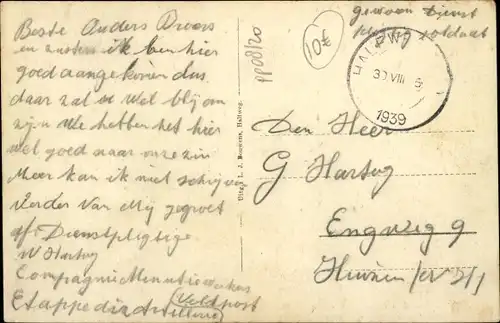 Beste Ouders Broers
en zusters ik ben hier
goed aangekomen dus
daar zal u wel blij om
zijn We hebben het hier
wel goed naar onze zin
Meer kan ik niet schrijven
Verder van Mij gegroet
als Dienstpligtige
W Hartog
Compagnie
Etappedienst
Veldpost
PP08/20
10€
gewoon Dienst
soldaat
HALFW
30 VIII
1939
Uitg. L. J. Bouwens, Halfweg.
Den Heer
G Hartog
Engweg 9
Huizen